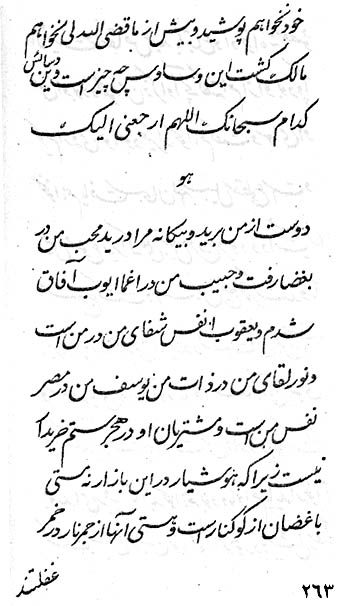 خود نخواهم پوشید و بیش از ما قضی الله لی نخواهم
مالک گشت این وساوس چه چیز است و این دسائس
کدام سبحانک اللهم ارجعنی الیک
هو
دوست از من برید و بیگانه مرا درید محب من در
بغضا رفت و حبیب من در اغما ایوب آفاق
شدم و یعقوب انفس شفای من در من است
و نور لقای من در ذات من یوسف من در مصر
نفس من است و مشتریان او در هجر ستم خریدار
نیست زیرا که هوشیار در این بازار نه مستی
باغضان از کوکنار است و مستی آنها از جمر نار در خمر
غفلتند
۲٦۳